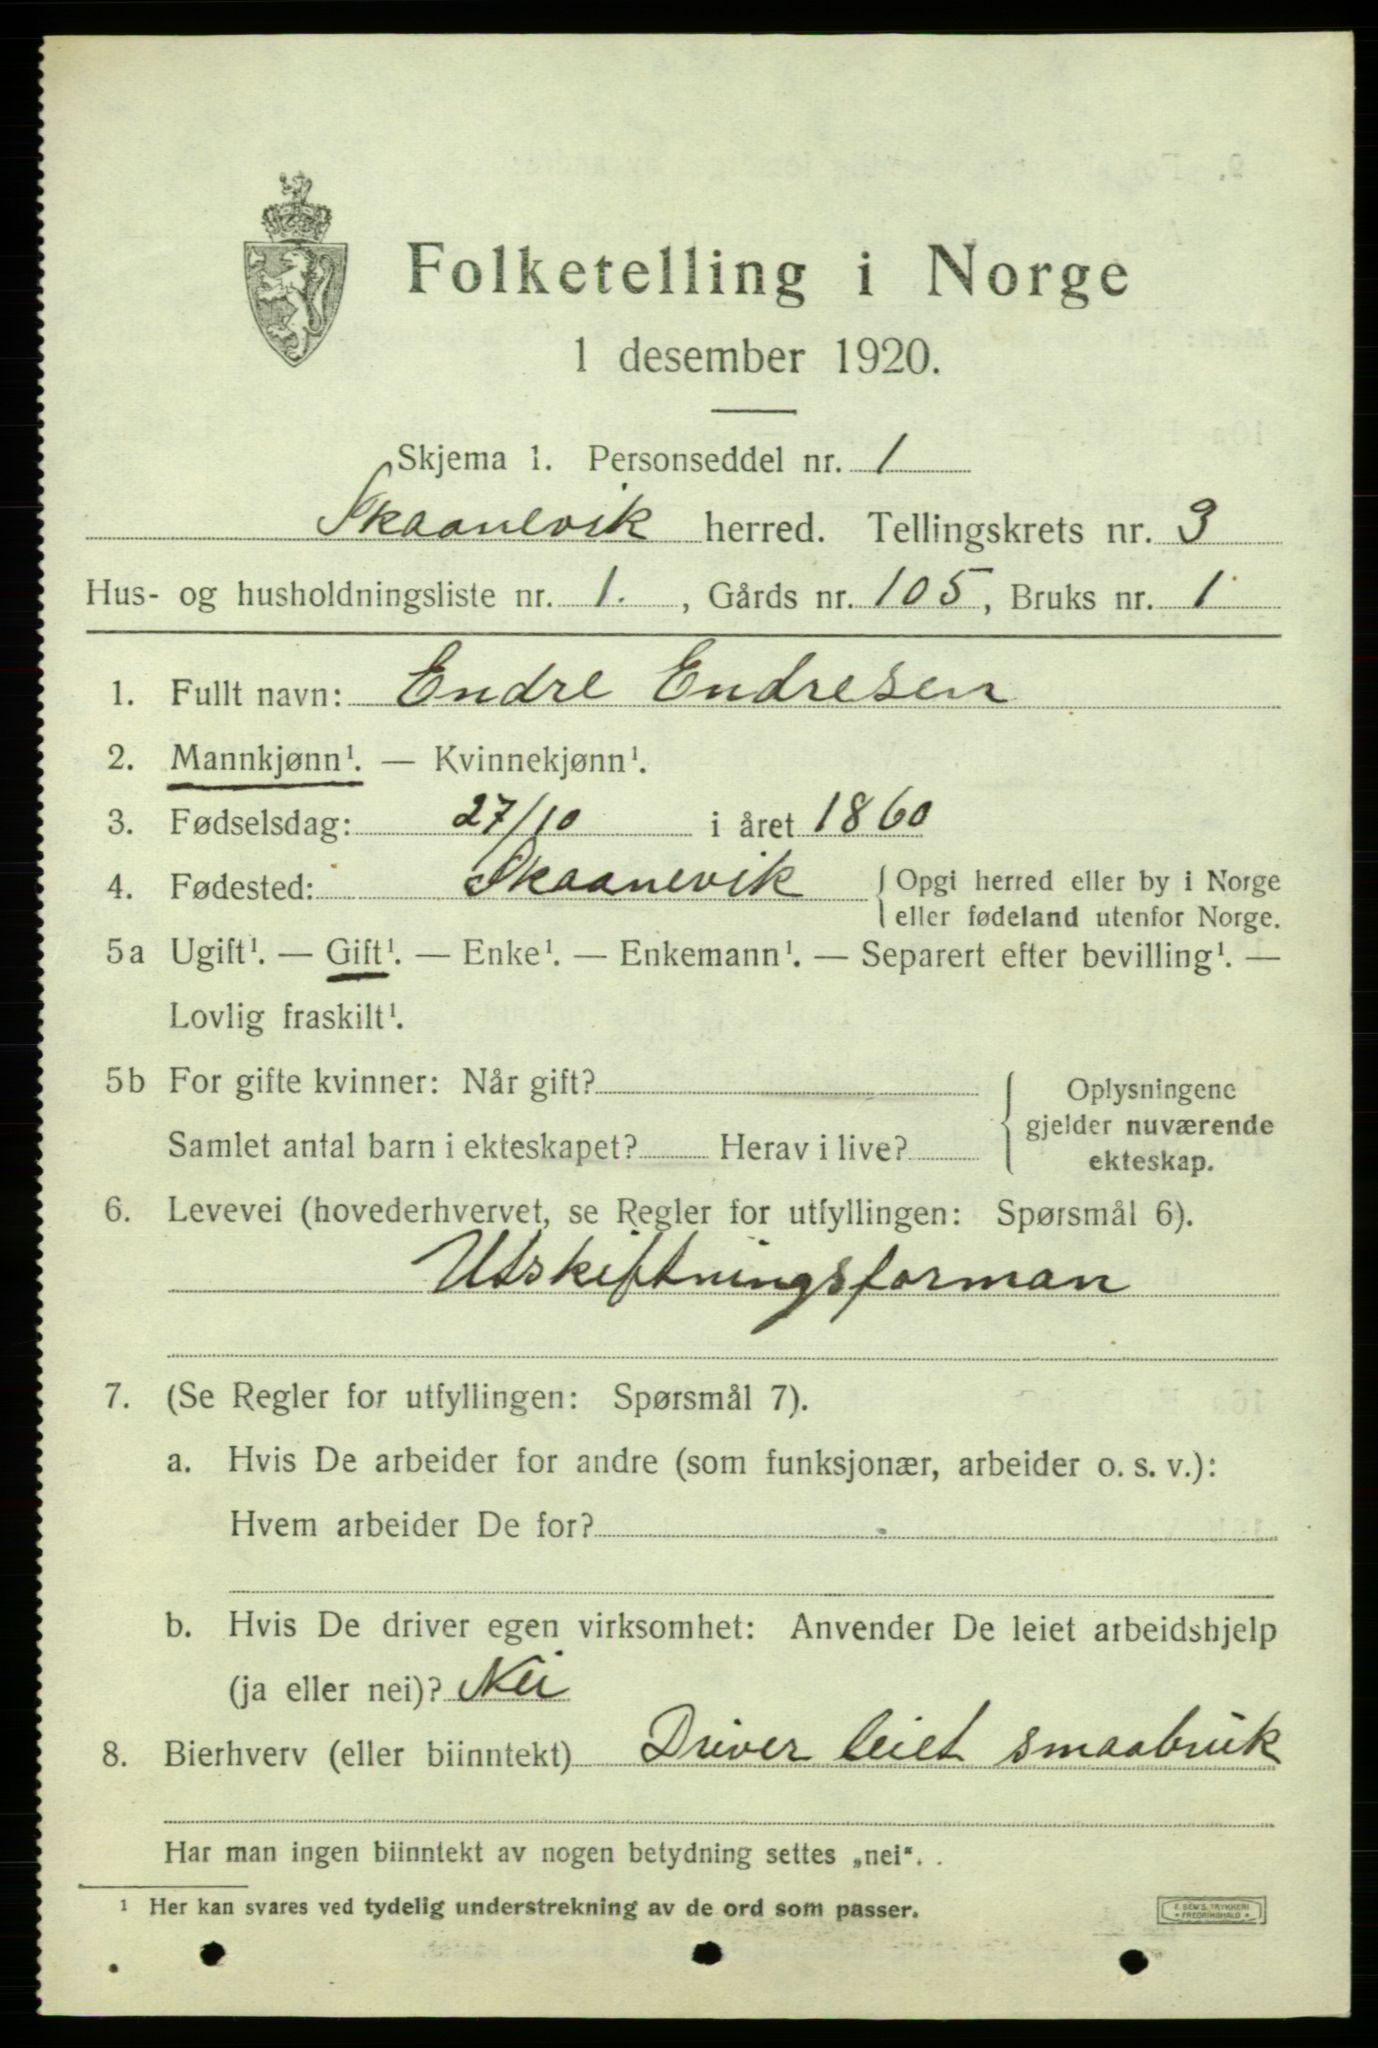 Folketelling i Norge
1 desember 1920.
Skjema 1. Personseddel nr. 1
Skaanevik herred. Tellingskrets nr. 3
Hus- og husholdningsliste nr. 1. , Gårds nr. 105, Bruks nr. 1
1. Fullt navn: Endre Endresen
2. Mannkjønn¹. — Kvinnekjønn¹.
3. Fødselsdag: 27/10 i året 1860
4. Fødested: Skaanevik { Opgi herred eller by i Norge
eller fødeland utenfor Norge.
5a Ugift¹. — Gift¹. — Enke¹. — Enkemann¹. — Separert efter bevilling¹. —
Lovlig fraskilt¹.
5b For gifte kvinner: Når gift?
Samlet antal barn i ekteskapet? Herav i live?
{ Oplysningene
gjelder nuværende
ekteskap.
6. Levevei (hovederhvervet, se Regler for utfyllingen: Spørsmål 6).
Utskiftningsforman
7. (Se Regler for utfyllingen: Spørsmål 7).
a. Hvis De arbeider for andre (som funksjonær, arbeider o. s. v.):
Hvem arbeider De for?
b. Hvis De driver egen virksomhet: Anvender De leiet arbeidshjelp
(ja eller nei)? Nei
8. Bierhverv (eller biinntekt) Driver leiet smaabruk
Har man ingen biinntekt av nogen betydning settes „nei“.
¹ Her kan svares ved tydelig understrekning av de ord som passer.
E. SEM'S TRYKKERI
FREDRIKSHALD